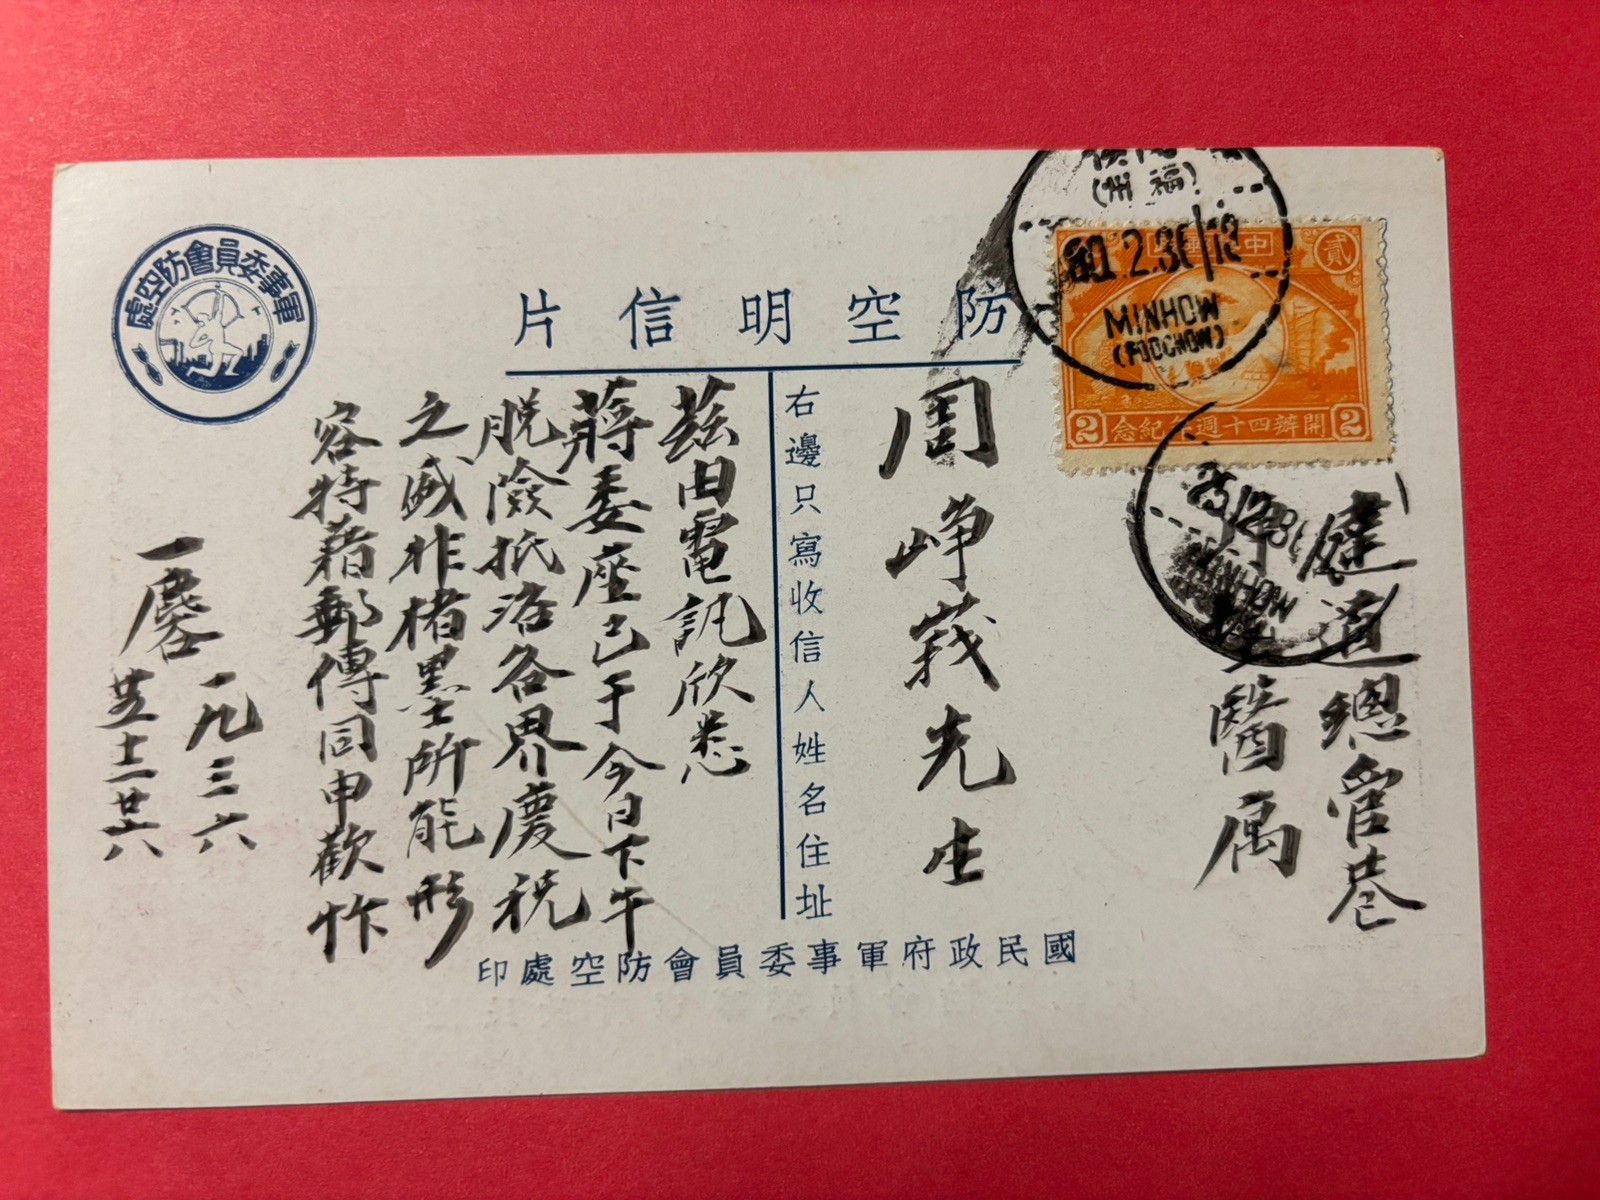 軍事委員會防空處
防空明信片
中
貳
2 開辦四十週年紀念 2
(福州)
MINHOW
(FOOCHOW)
MINHOW
建道總管巷
醫寓
周崢莪先生
右邊只寫收信人姓名住址
茲由電訊欣悉
蔣委座已于今日下午
脫險抵洛各界慶祝
之盛非楮墨所能形
容特藉郵傳同申歡忭
一麐
一九三六
廿五 十二 廿六
國民政府軍事委員會防空處印